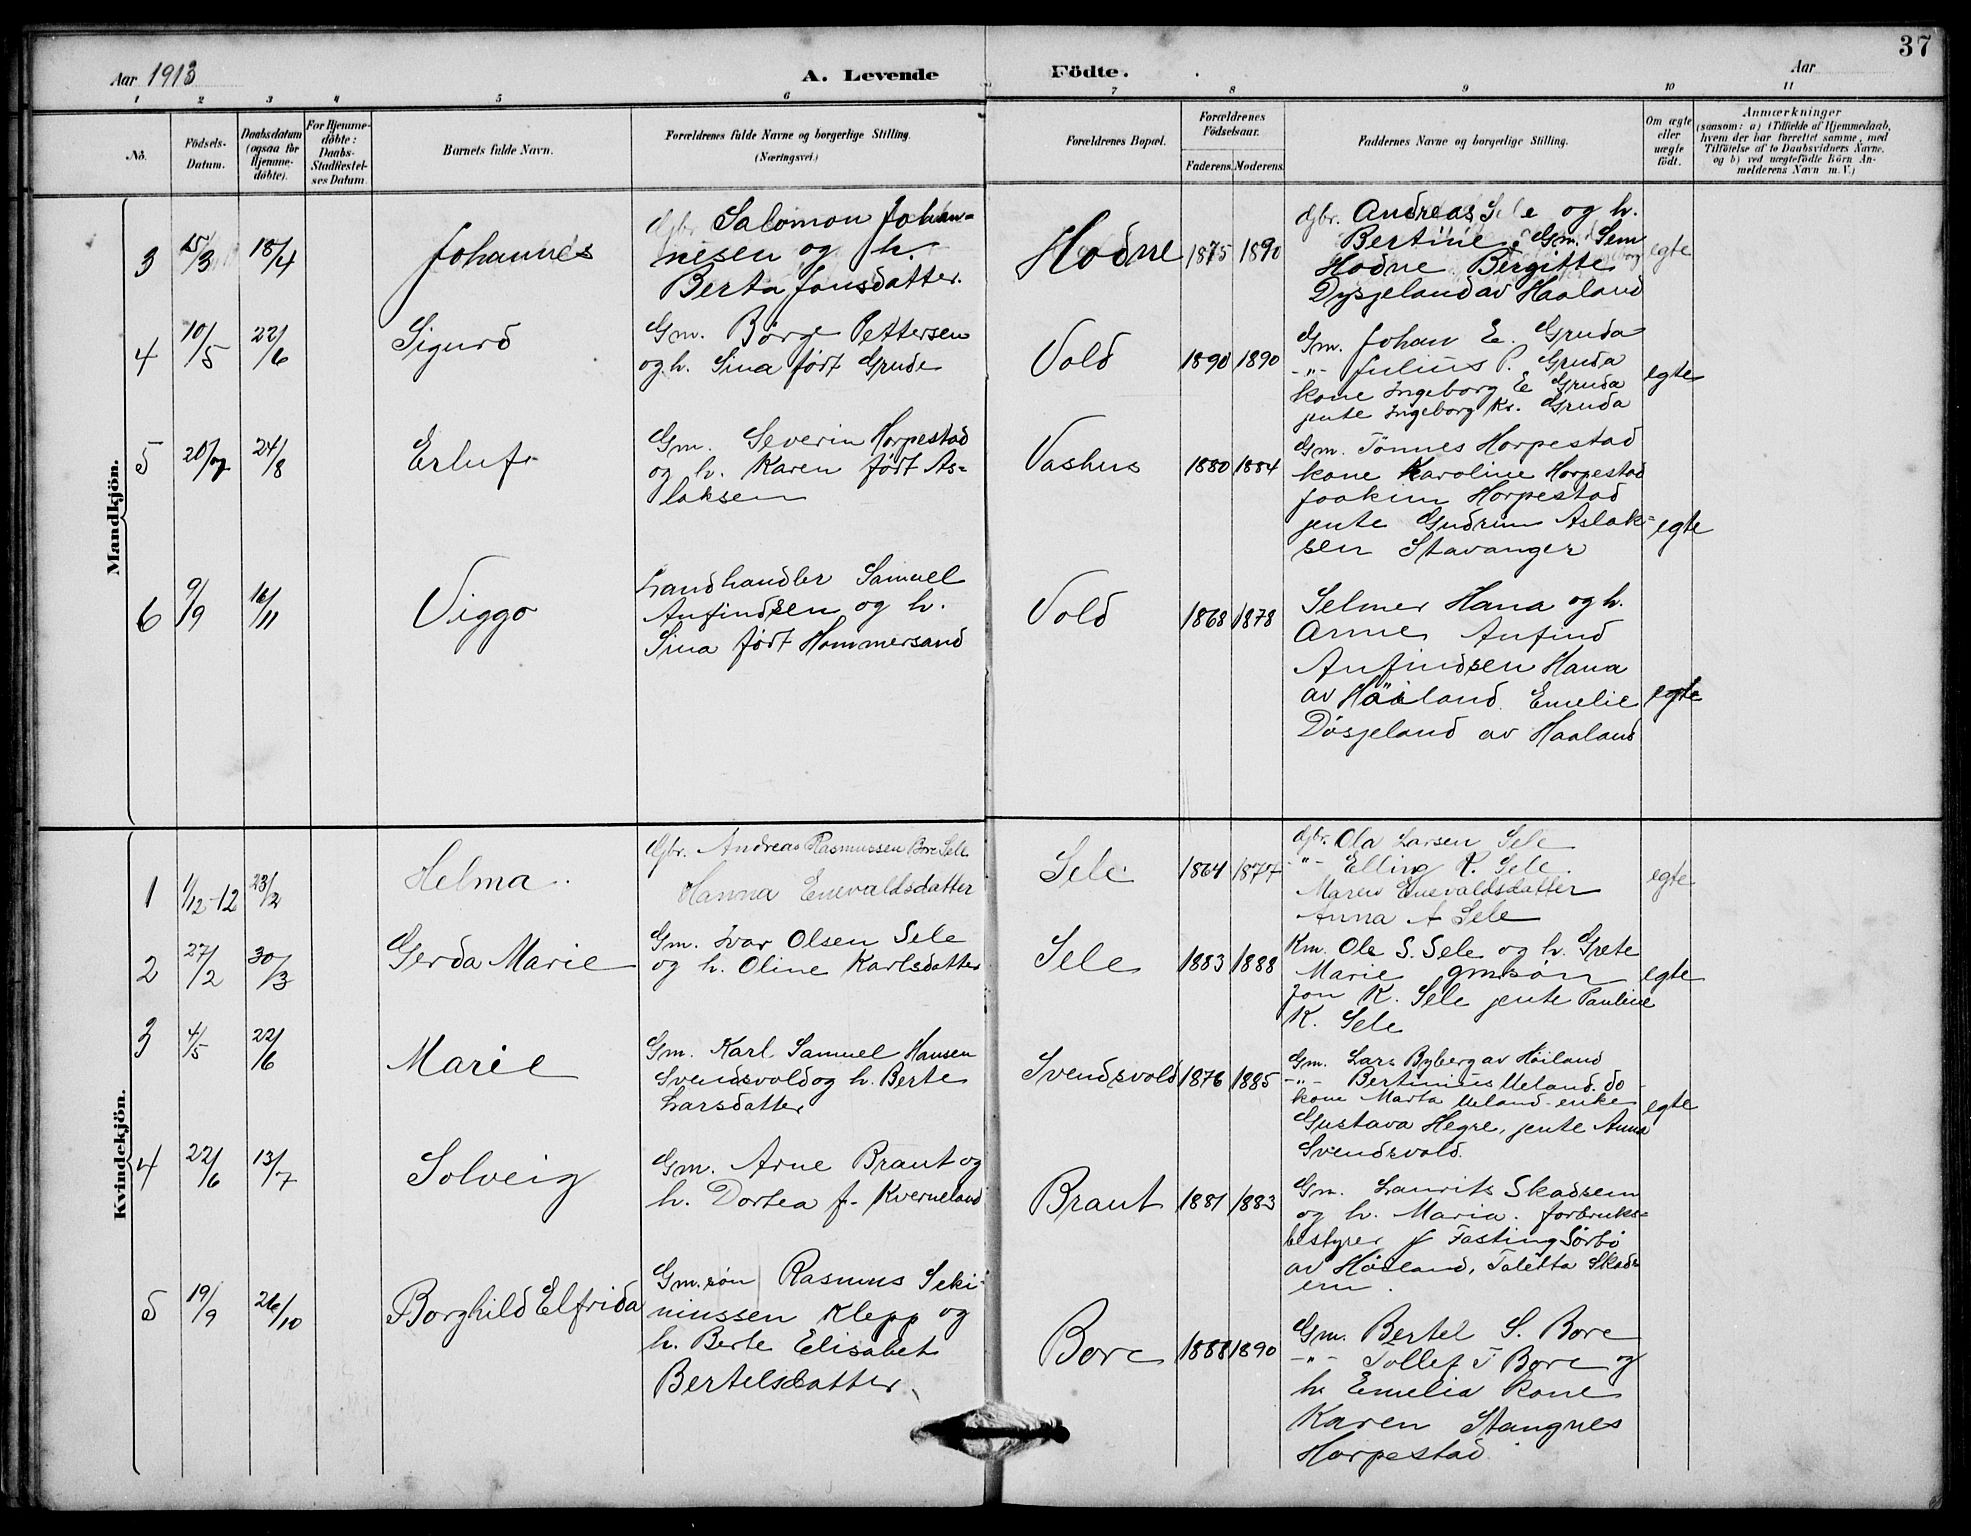 37
Aar 1913
A. Levende
Födte.
Aar
1 2 3 4 5 6 7 8 9 10 11
No.
Födsels-
Datum.
Daabsdatum
(ogsaa for
Hjemme-
döbte).
For Hjemme-
döbte:
Daabs-
Stadfæstel-
ses Datum.
Barnets fulde Navn.
Forældrenes fulde Navne og borgerlige Stilling.
(Næringsvei.)
Forældrenes Bopæl.
Forældrenes
Födselsaar.
Faderens. Moderens.
Faddernes Navne og borgerlige Stilling.
Om ægte
eller
uægte
födt.
Anmærkninger
(saasom: a) i Tilfælde af Hjemmedaab,
hvem der har forrettet samme, med
Tilföielse af to Daabsvidners Navne,
og b) ved uægtefödte Börn An-
melderens Navn m. V.)
Mandkjön.
3 15/3 18/4 Johannes
Gbr. Salomon Johan-
nesen og h.
Berta Jonsdatter.
Hodne 1875 1890
Gbr. Andreas Sele og h.
Bertine, Gm. Sem
Hodne Bergitte
Dysjeland av Haaland
egte
4 10/5 22/6 Sigurd
Gm. Börge Pettersen
og h. Sina født Grude
Vold 1890 1890
Gm. Johan E. Gruda
-"- Julius P. Gruda
kone Ingeborg E Gruda
jente Ingeborg Kr. Gruda
egte
5 20/7 24/8 Erluf
Gm. Severin Horpestad
og h. Karen født As-
laksen
Vashus 1880 1884
Gm. Tönnes Horpestad
kone Karoline Horpestad
Joakim Horpestad
jente Gudrun Aslak-
sen Stavanger
egte
6 9/9 16/11 Viggo
Landhandler Samuel
Anfindsen og h.
Sina født Hommersand
Vold 1868 1878
Selmer Hana og h.
Anne, Anfind
Anfindsen Hana
av Höiland. Emelie
Dösjeland av Haaland
egte
Kvindekjön.
1 1/12-12 23/2 Helma.
Gbr. Andreas Rasmussen Bore Sele
Hanna Enevaldsdatter
Sele 1864 1877
Gbr. Ola Larsen Sele
-"- Elling K. Sele.
Maren Enevaldsdatter
Anna A Sele
egte
2 27/2 30/3 Gerda Marie
Gm. Ivar Olsen Sele
og h. Oline Karlsdatter
Sele 1883 1888
Km. Ole S. Sele og h. Grete
Marie gmlsön
Jon K. Sele jente Pauline
K. Sele
egte
3 4/5 22/6 Marie
Gm. Karl Samuel Hansen
Svendsvold og h. Berte
Larsdatter
Svendsvold 1876 1885
Gm. Lars Byberg av Höiland
-"- Bertinius Ueland do
kone Marta Ueland enke
Gustava Hegre, jente Anna
Svendsvold.
egte
4 22/6 13/7 Solveig
Gm. Arne Braut og
h. Dortea f. Kverneland
Braut 1881 1883
Gm. Laurits Skadsem
og h. Maria. forbruks-
bestyrer J Fasting Sörbö
av Höiland, Taletta Skads
em.
5 19/9 26/10 Borghild Elfrida
Gm.sön Rasmus Seki-
niussen Klepp og
h. Berte Elisabet
Bertelsdatter.
Bore 1888 1890
Gm. Bertel S. Bore
-"- Tollef T Bore og
h. Emelia kone
Karen Stangnes
Horpestad.